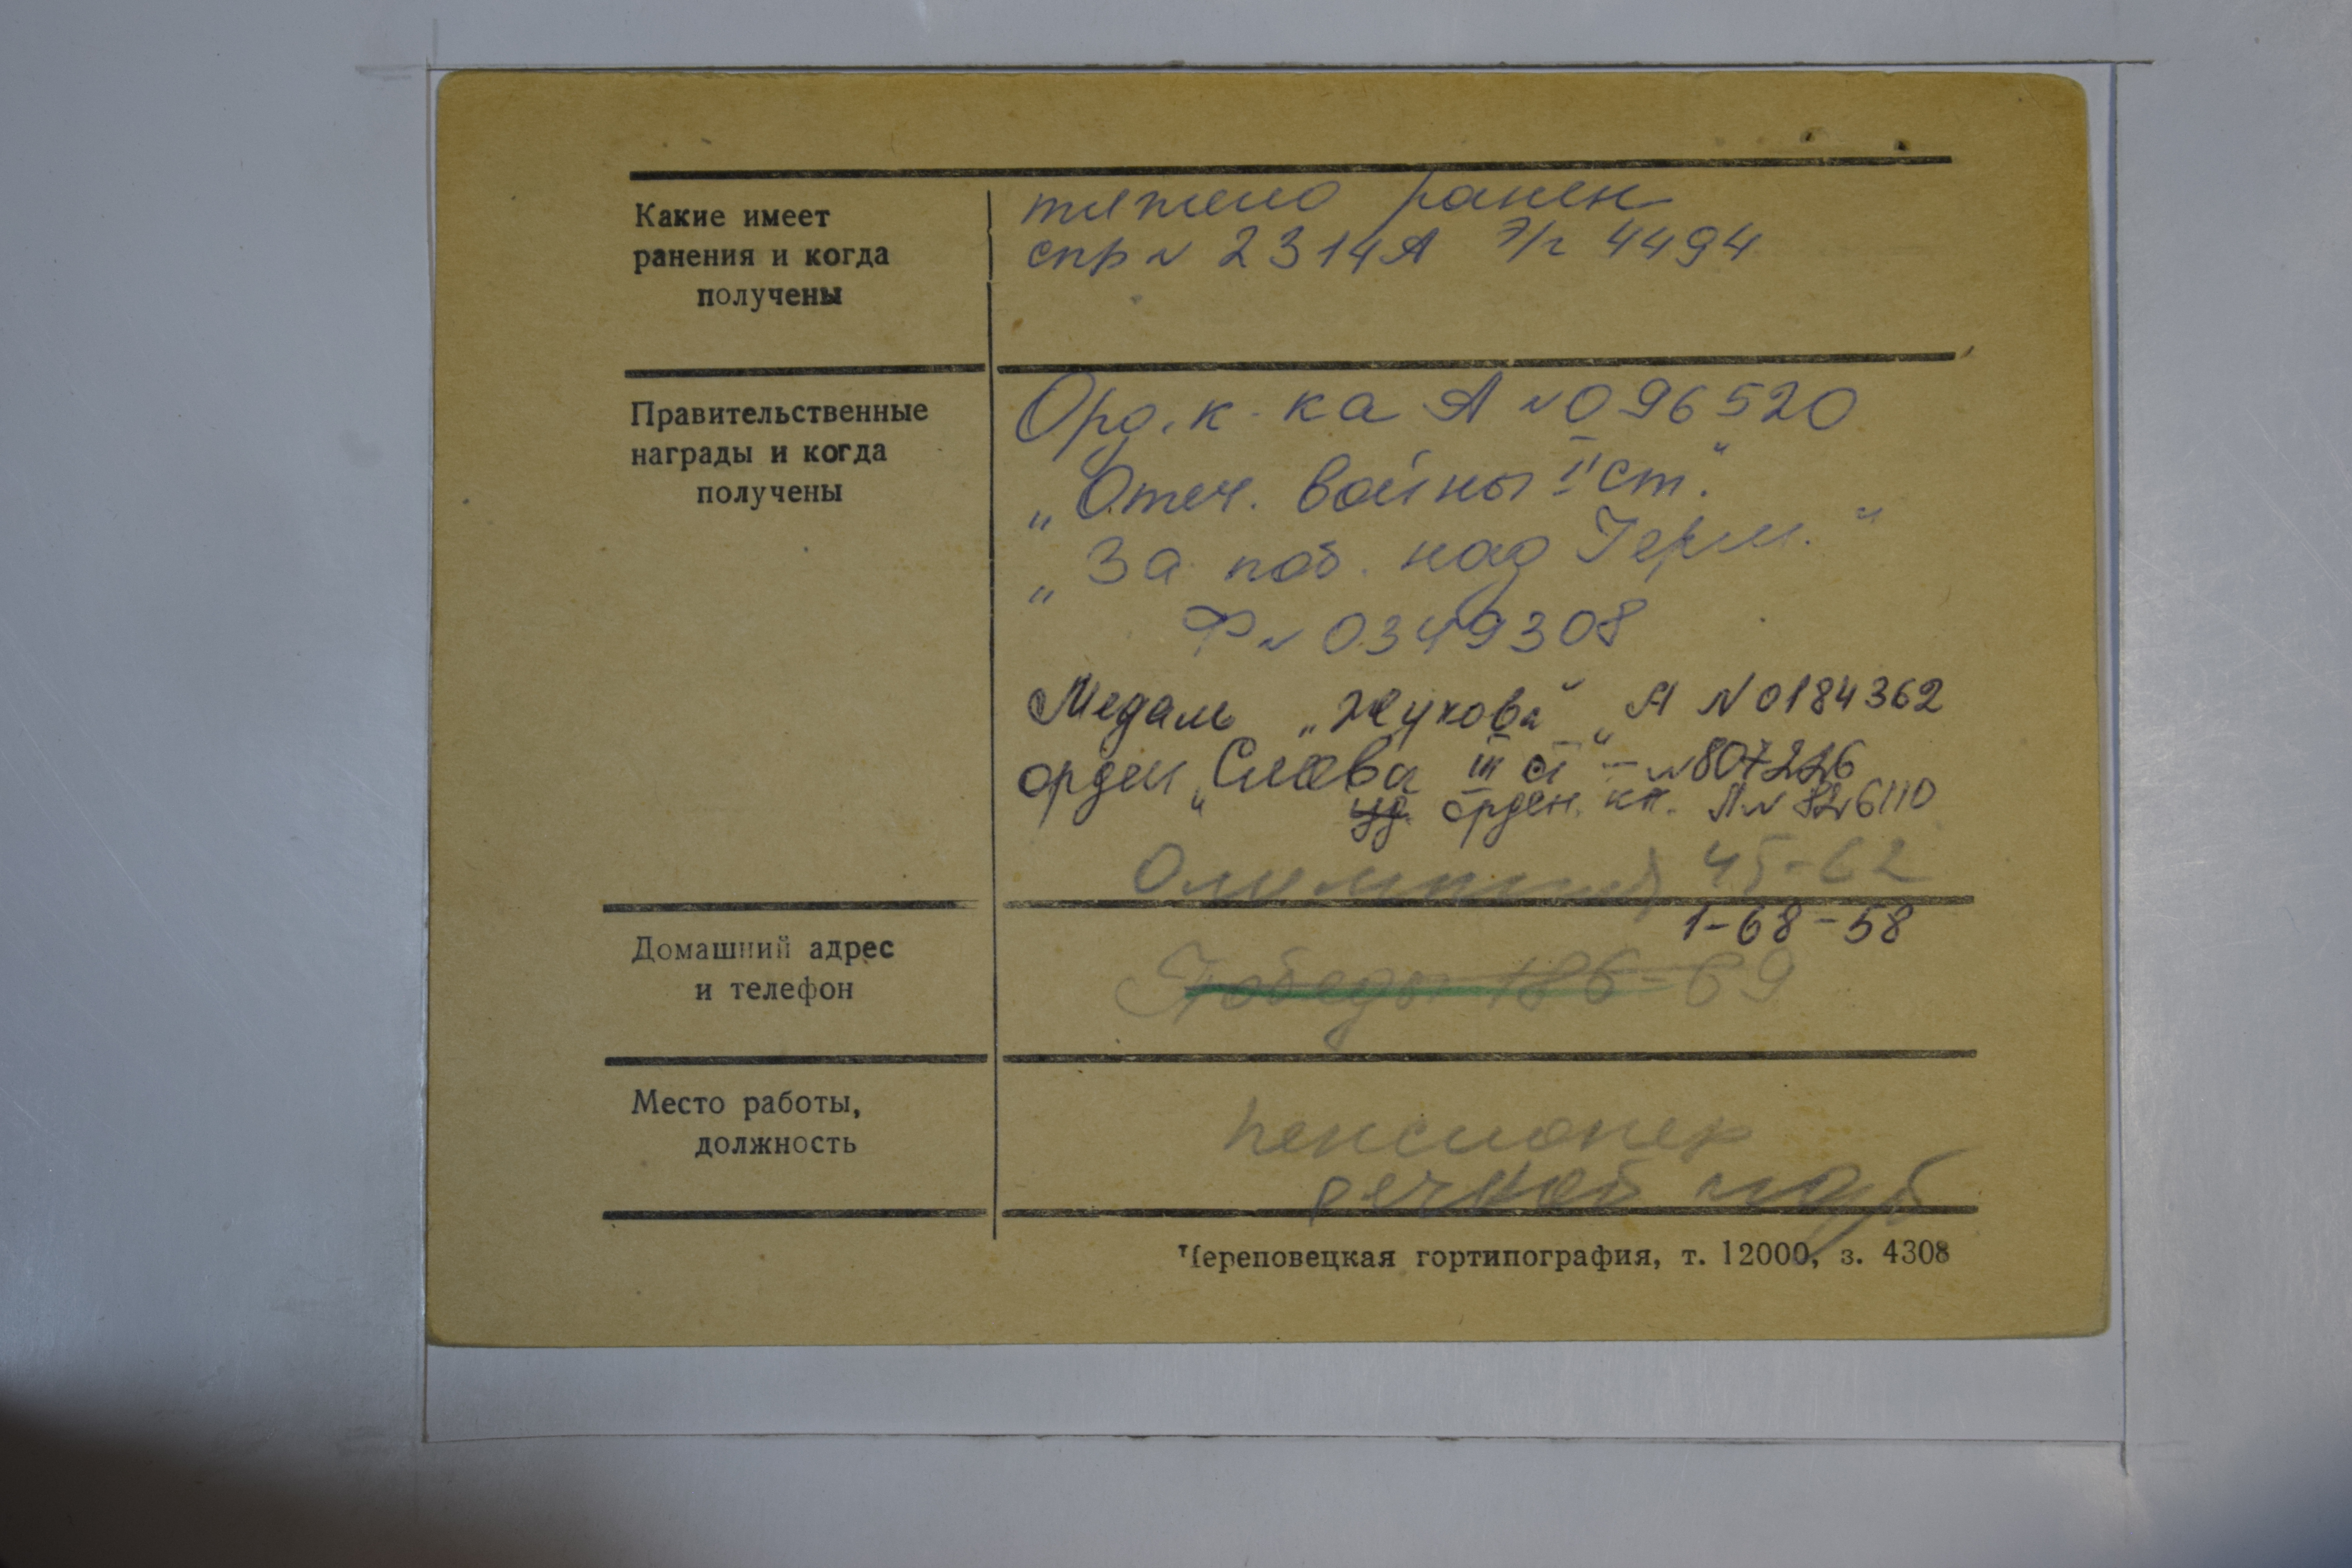 Какие имеет
ранения и когда
получены
тяжело ранен
спр № 2314А Э/г 4494
Правительственные
награды и когда
получены
Орд. к-ка А № 096520
„Отеч. войны II ст."
„За поб. над Герм."
Ф № 0349308
Медаль „Жукова" А № 0184362
орден „Слава III ст" – № 807226
уд. орден. кн. Л № 826110
Олимпийск 45-62
Домашний адрес
и телефон
1-68-58
Победы 186-69
Место работы,
должность
пенсионер
речной порт
Череповецкая гортипография, т. 12000, з. 4308